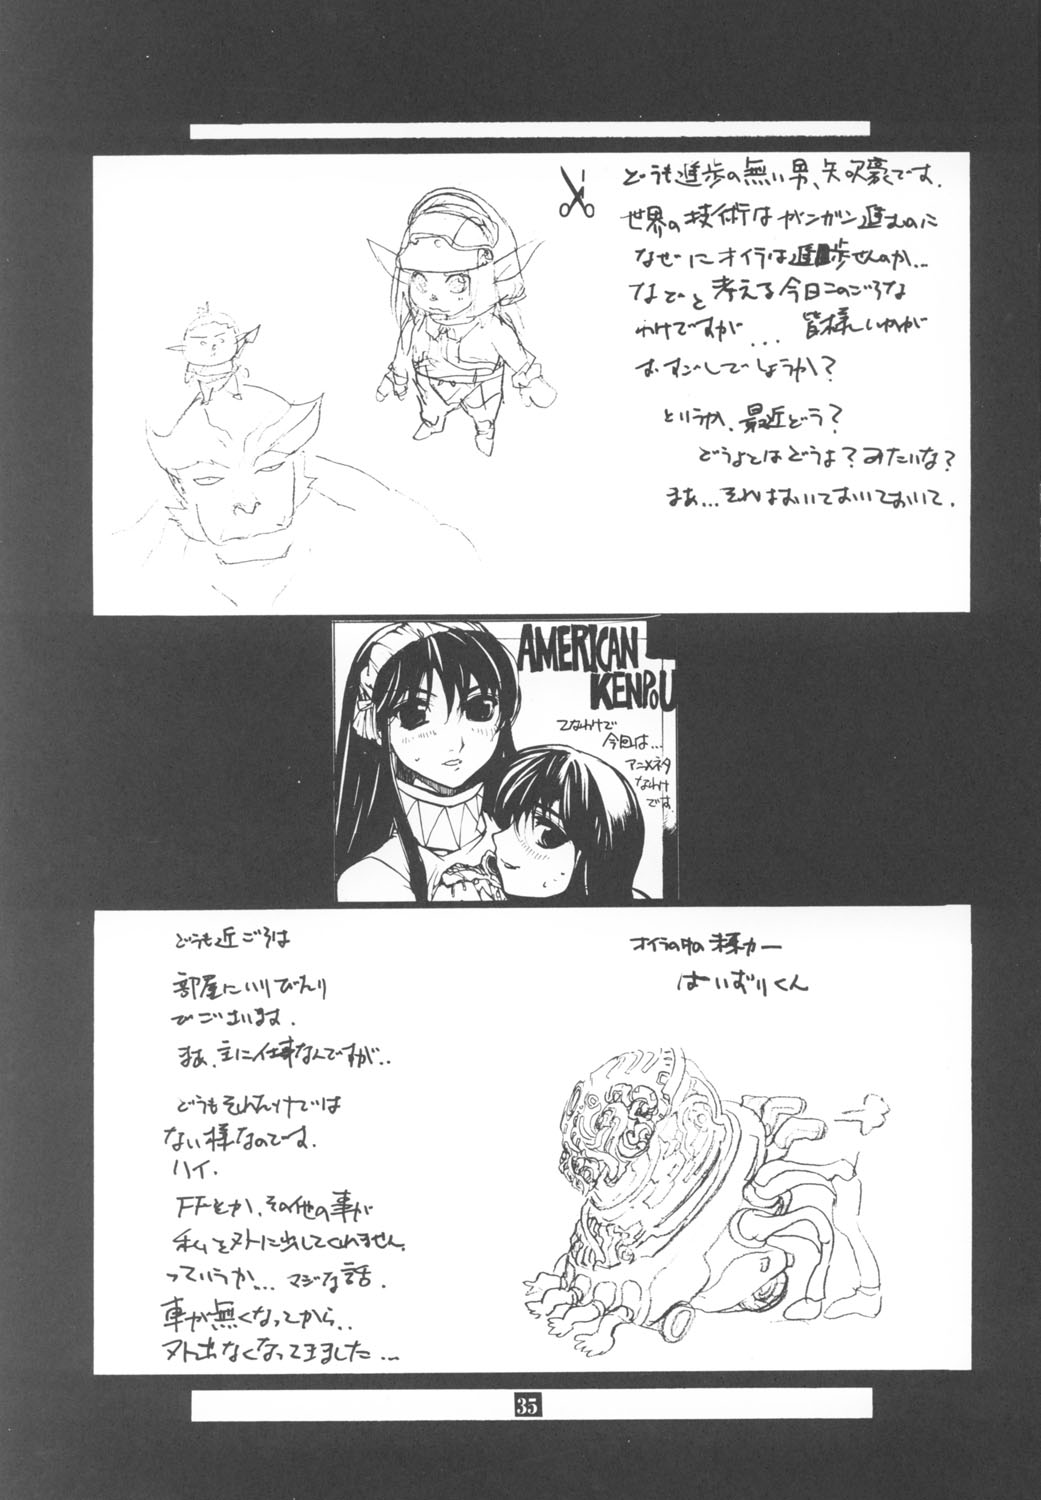 どうも進歩の無い男、矢吹豪です.
世界の技術はガンガン進むのに
なぜにオイラは進歩せんのか...
などと考える今日このごろな
わけですが... 皆様いかが
おすごしでしょうか?
というか、最近どう?
どうよとはどうよ?みたいな?
まぁ...それはおいておいておいて.
AMERICAN
KENPOU
てなわけで
今回は...
アニメネタ
なわけ
です.
どうも近ごろは
部屋にいりびたり
でございます.
まあ、主に仕事なんですが..
どうもそれだけでは
ない様なのです.
ハイ.
FFとか、その他の事が
私を外に出してくれません.
っていうか... マジな話.
車が無くなってから..
外出なくなってきました...
オイラの中の
カー
はいずりくん
35